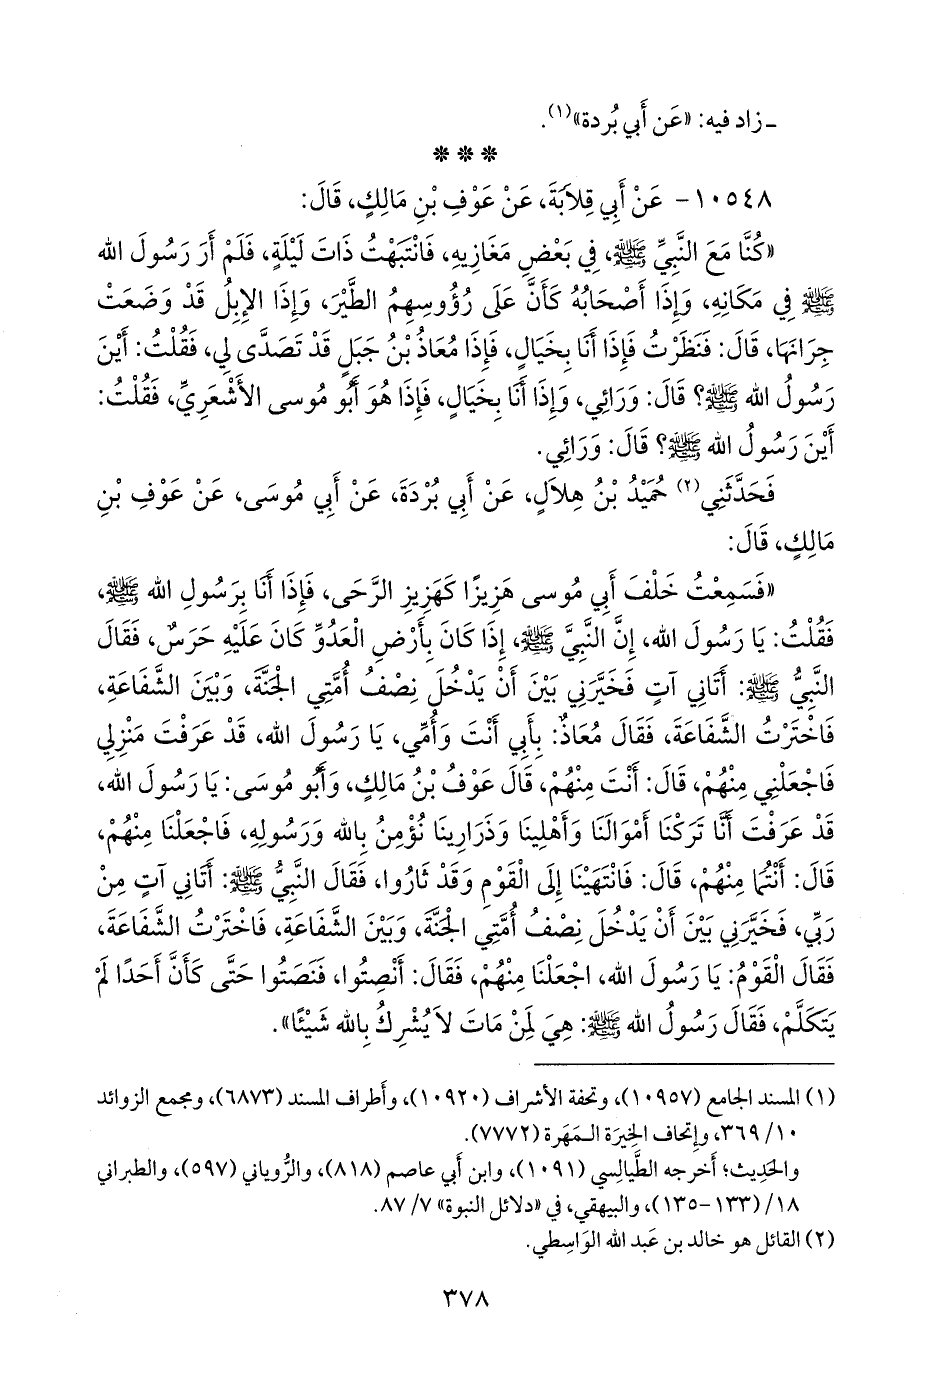 ـ زاد فيه: «عَن أَبي بُردة»(١).
* * *
١٠٥٤٨ - عَنْ أَبِي قِلاَبَةَ، عَنْ عَوْفِ بْنِ مَالِكٍ، قَالَ:
«كُنَّا مَعَ النَّبِيِّ ﷺ، فِي بَعْضِ مَغَازِيهِ، فَانْتَبَهْتُ ذَاتَ لَيْلَةٍ، فَلَمْ أَرَ رَسُولَ الله
ﷺ فِي مَكَانِهِ، وَإِذَا أَصْحَابُهُ كَأَنَّ عَلَى رُؤُوسِهِمُ الطَّيْرَ، وَإِذَا الإِبِلُ قَدْ وَضَعَتْ
جِرَانَهَا، قَالَ: فَنَظَرْتُ فَإِذَا أَنَا بِخَيَالٍ، فَإِذَا مُعَاذُ بْنُ جَبَلٍ قَدْ تَصَدَّى لِي، فَقُلْتُ: أَيْنَ
رَسُولُ الله ﷺ؟ قَالَ: وَرَائِي، وَإِذَا أَنَا بِخَيَالٍ، فَإِذَا هُوَ أَبُو مُوسى الأَشْعَرِيِّ، فَقُلْتُ:
أَيْنَ رَسُولُ الله ﷺ؟ قَالَ: وَرَائِي.
فَحَدَّثَنِي(٢) حُمَيْدُ بْنُ هِلاَلٍ، عَنْ أَبِي بُرْدَةَ، عَنْ أَبِي مُوسَى، عَنْ عَوْفِ بْنِ
مَالِكٍ، قَالَ:
«فَسَمِعْتُ خَلْفَ أَبِي مُوسى هَزِيزًا كَهَزِيزِ الرَّحَى، فَإِذَا أَنَا بِرَسُولِ الله ﷺ،
فَقُلْتُ: يَا رَسُولَ الله، إِنَّ النَّبِيَّ ﷺ، إِذَا كَانَ بِأَرْضِ الْعَدُوِّ كَانَ عَلَيْهِ حَرَسٌ، فَقَالَ
النَّبِيُّ ﷺ: أَتَانِي آتٍ فَخَيَّرَنِي بَيْنَ أَنْ يَدْخُلَ نِصْفُ أُمَّتِي الْجَنَّةَ، وَبَيْنَ الشَّفَاعَةِ،
فَاخْتَرْتُ الشَّفَاعَةَ، فَقَالَ مُعَاذٌ: بِأَبِي أَنْتَ وَأُمِّي، يَا رَسُولَ الله، قَدْ عَرَفْتَ مَنْزِلِي
فَاجْعَلْنِي مِنْهُمْ، قَالَ: أَنْتَ مِنْهُمْ، قَالَ عَوْفُ بْنُ مَالِكٍ، وَأَبُو مُوسَى: يَا رَسُولَ الله،
قَدْ عَرَفْتَ أَنَّا تَرَكْنَا أَمْوَالَنَا وَأَهْلِينَا وَذَرَارِينَا نُؤْمِنُ بِالله وَرَسُولِهِ، فَاجْعَلْنَا مِنْهُمْ،
قَالَ: أَنْتُمَا مِنْهُمْ، قَالَ: فَانْتَهَيْنَا إِلَى الْقَوْمِ وَقَدْ ثَارُوا، فَقَالَ النَّبِيُّ ﷺ: أَتَانِي آتٍ مِنْ
رَبِّي، فَخَيَّرَنِي بَيْنَ أَنْ يَدْخُلَ نِصْفُ أُمَّتِي الْجَنَّةَ، وَبَيْنَ الشَّفَاعَةِ، فَاخْتَرْتُ الشَّفَاعَةَ،
فَقَالَ الْقَوْمُ: يَا رَسُولَ الله، اجْعَلْنَا مِنْهُمْ، فَقَالَ: أَنْصِتُوا، فَنَصَتُوا حَتَّى كَأَنَّ أَحَدًا لَمْ
يَتَكَلَّمْ، فَقَالَ رَسُولُ الله ﷺ: هِيَ لِمَنْ مَاتَ لاَ يُشْرِكُ بِالله شَيْئًا».
(١) المسند الجامع (١٠٩٥٧)، وتحفة الأشراف (١٠٩٢٠)، وأطراف المسند (٦٨٧٣)، ومجمع الزوائد
١٠/ ٣٦٩، وإتحاف الخِيرَة المَهَرة (٧٧٧٢).
والحَدِيث؛ أخرجه الطَّيالِسي (١٠٩١)، وابن أَبي عاصم (٨١٨)، والرُّوياني (٥٩٧)، والطبراني
١٨/ (١٣٣-١٣٥)، والبيهقي، في «دلائل النبوة» ٧/ ٨٧.
(٢) القائل هو خالد بن عَبد الله الوَاسِطي.
٣٧٨